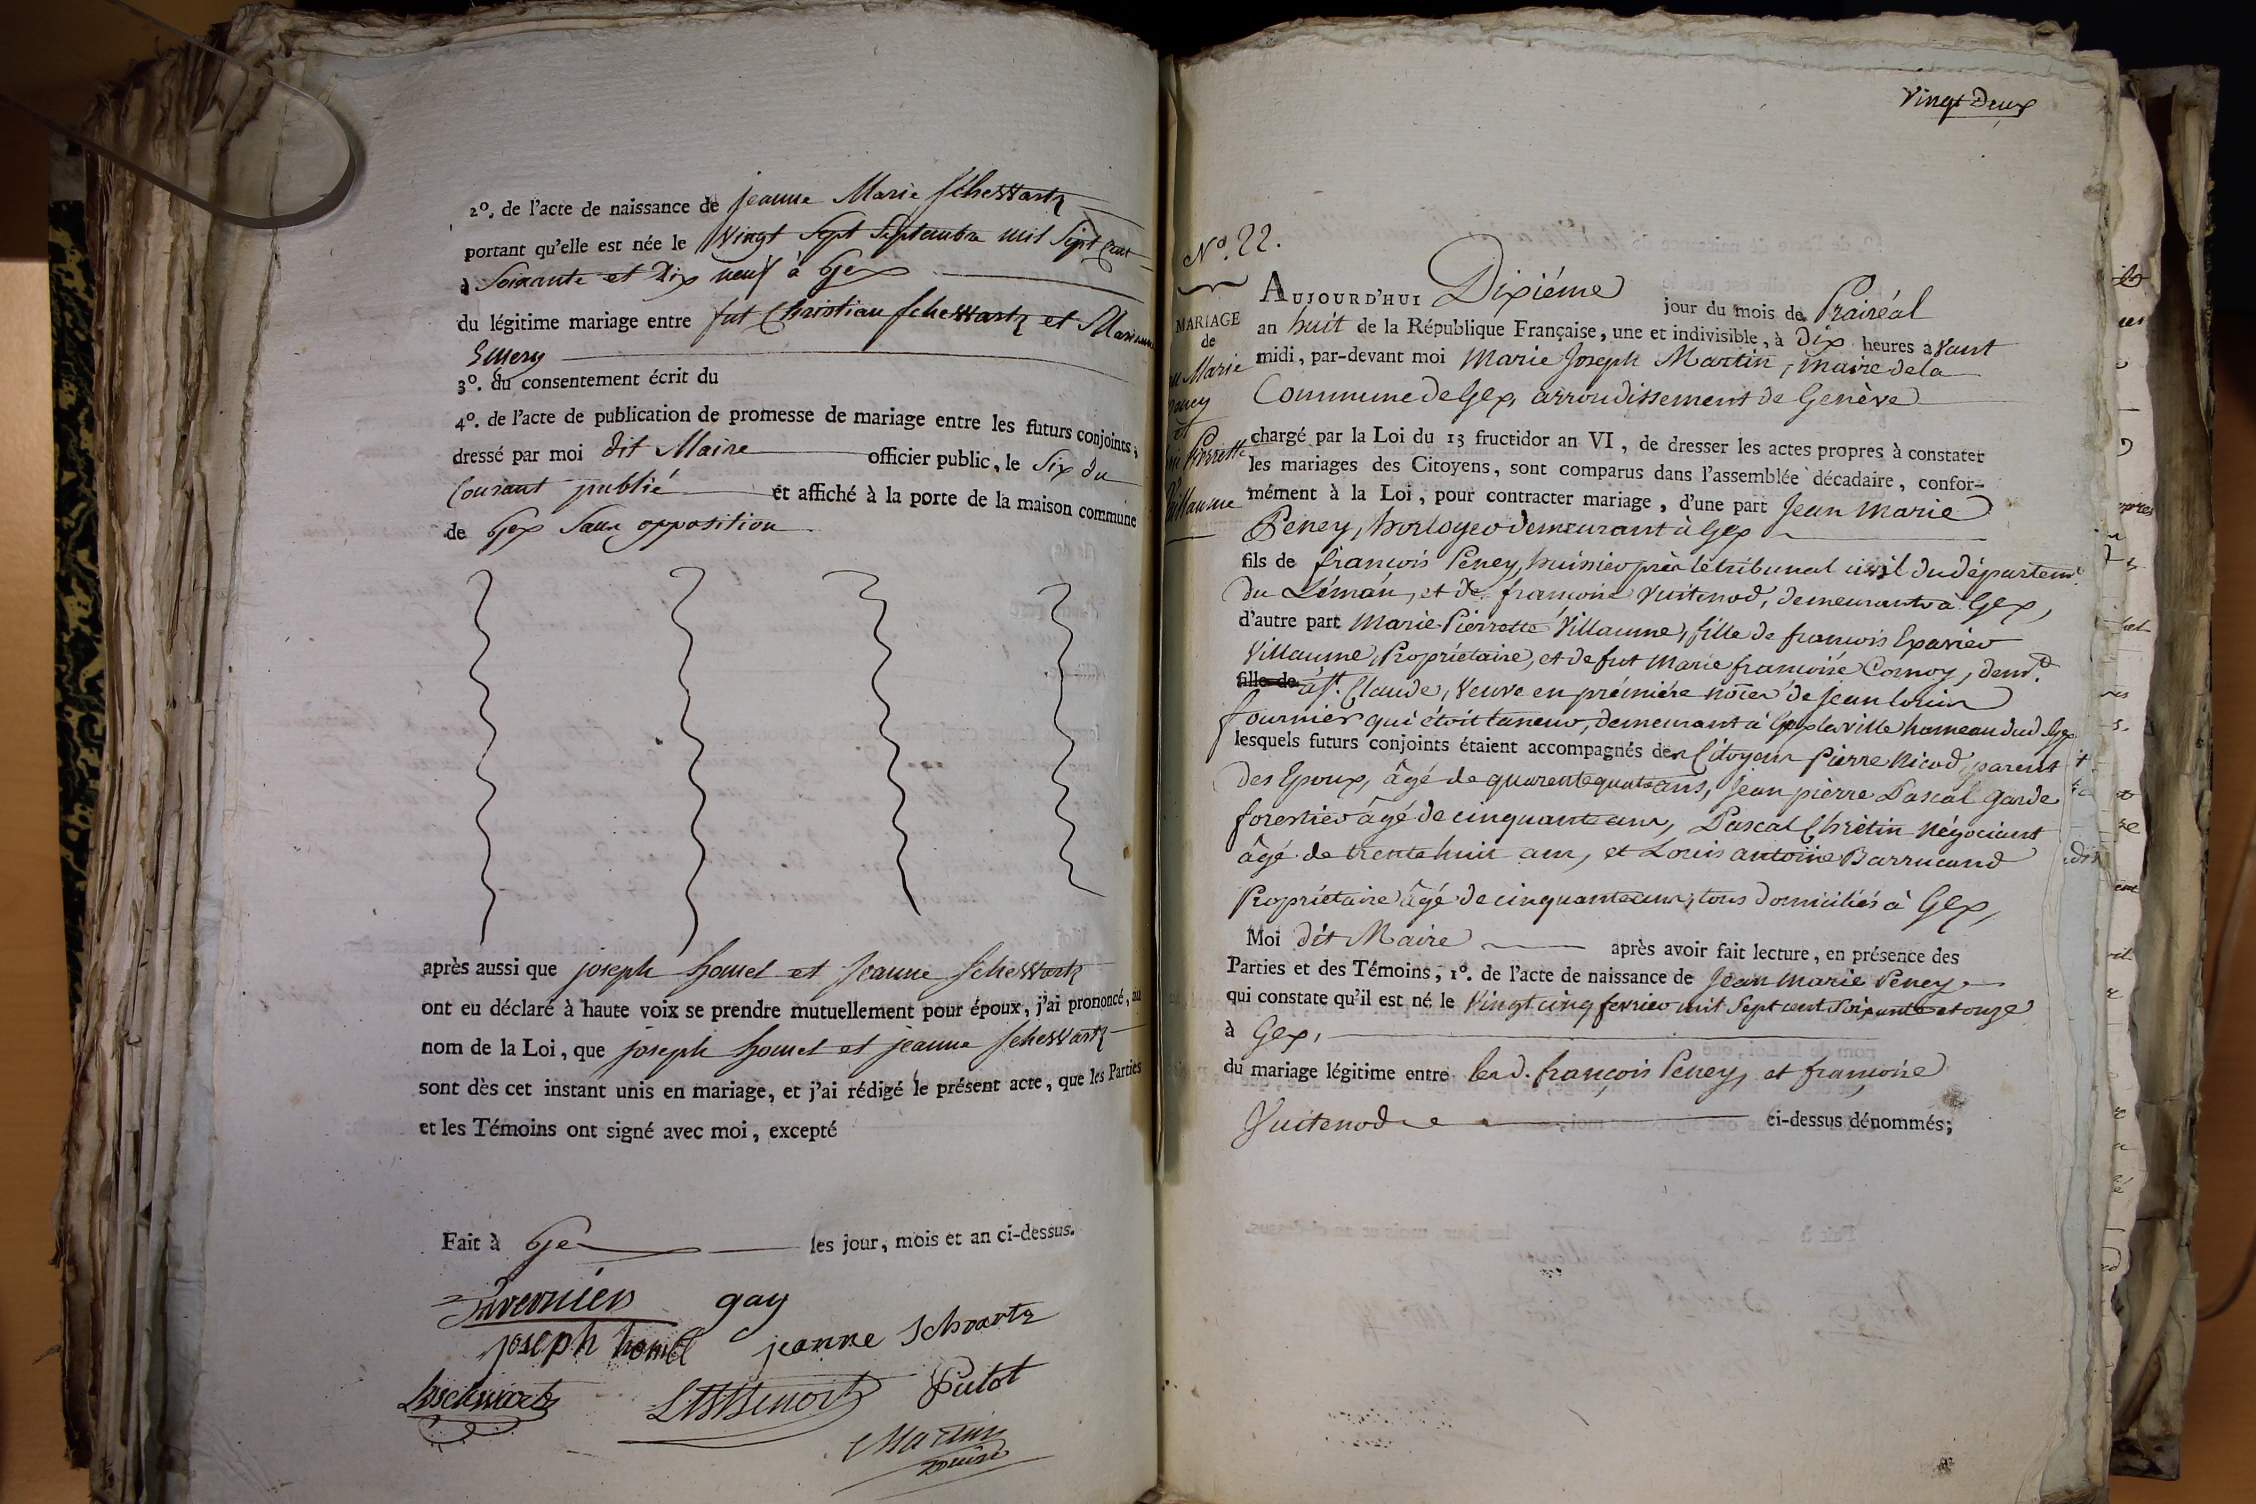 2º. de l'acte de naissance de jeanne Marie Schewartz
portant qu'elle est née le Vingt Sept Septembre mil Sept Cent
Soixante et Dix neuf à Gex
du légitime mariage entre fut Christian Schewartz et Marianne
Emery
3º. du consentement écrit du
4º. de l'acte de publication de promesse de mariage entre les futurs conjoints,
dressé par moi dit Maire officier public, le Six du
Courant publié et affiché à la porte de la maison commune
de Gex Sans opposition
après aussi que joseph homel et Jeanne Schewartz
ont eu déclaré à haute voix se prendre mutuellement pour époux, j'ai prononcé, au
nom de la Loi, que joseph homel et jeanne Schewartz
sont dès cet instant unis en mariage, et j'ai rédigé le présent acte, que les Parties
et les Témoins ont signé avec moi, excepté
Fait à Gex les jour, mois et an ci-dessus.
Tavernier gay
joseph homel jeanne Schvartz
Putot
Martin
maire
Vingt Deux
Nº. 22.
MARIAGE
de
Marie
et
Pierrette
Villaume
AUJOURD'HUI Dixiéme jour du mois de Prairéal
an huit de la République Française, une et indivisible, à Dix heures avant
midi, par-devant moi Marie Joseph Martin, maire de la
Commune de Gex, arrondissement de Genève
chargé par la Loi du 13 fructidor an VI, de dresser les actes propres à constater
les mariages des Citoyens, sont comparus dans l'assemblée décadaire, confor-
mément à la Loi, pour contracter mariage, d'une part Jean Marie
Peney, horloger demeurant à Gex
fils de françois Peney, huissier près le tribunal civil du départemt.
du Léman, et de françoise Vuitenod, demeurants à Gex,
d'autre part Marie Pierrette Villaume, fille de françois Exavier
Villaume, Propriétaire, et de fut Marie françoise Cornoy, demt.
fille de à St. Claude, Veuve en prémiére nôces de Jean louis
fournier qui étoit taneur, demeurant à Gex la ville hameau dud. Gex
lesquels futurs conjoints étaient accompagnés des Citoyens Pierre Nicod parent
des Epoux, âgé de quarente quatre ans, Jean pierre Pascal garde
forestier âgé de cinquante ans, Pascal Chrétin Négociant
âgé de trente huit ans, et Louis antoine Barrucand
Propriétaire âgé de cinquante ans, tous domiciliés à Gex,
Moi dit Maire après avoir fait lecture, en présence des
Parties et des Témoins, 1º. de l'acte de naissance de Jean Marie Peney
qui constate qu'il est né le Vingt cinq fevrier mil Sept cent Soixante et onze
à Gex,
du mariage légitime entre led. françois Peney, et françoise
Vuitenod ci-dessus dénommés;